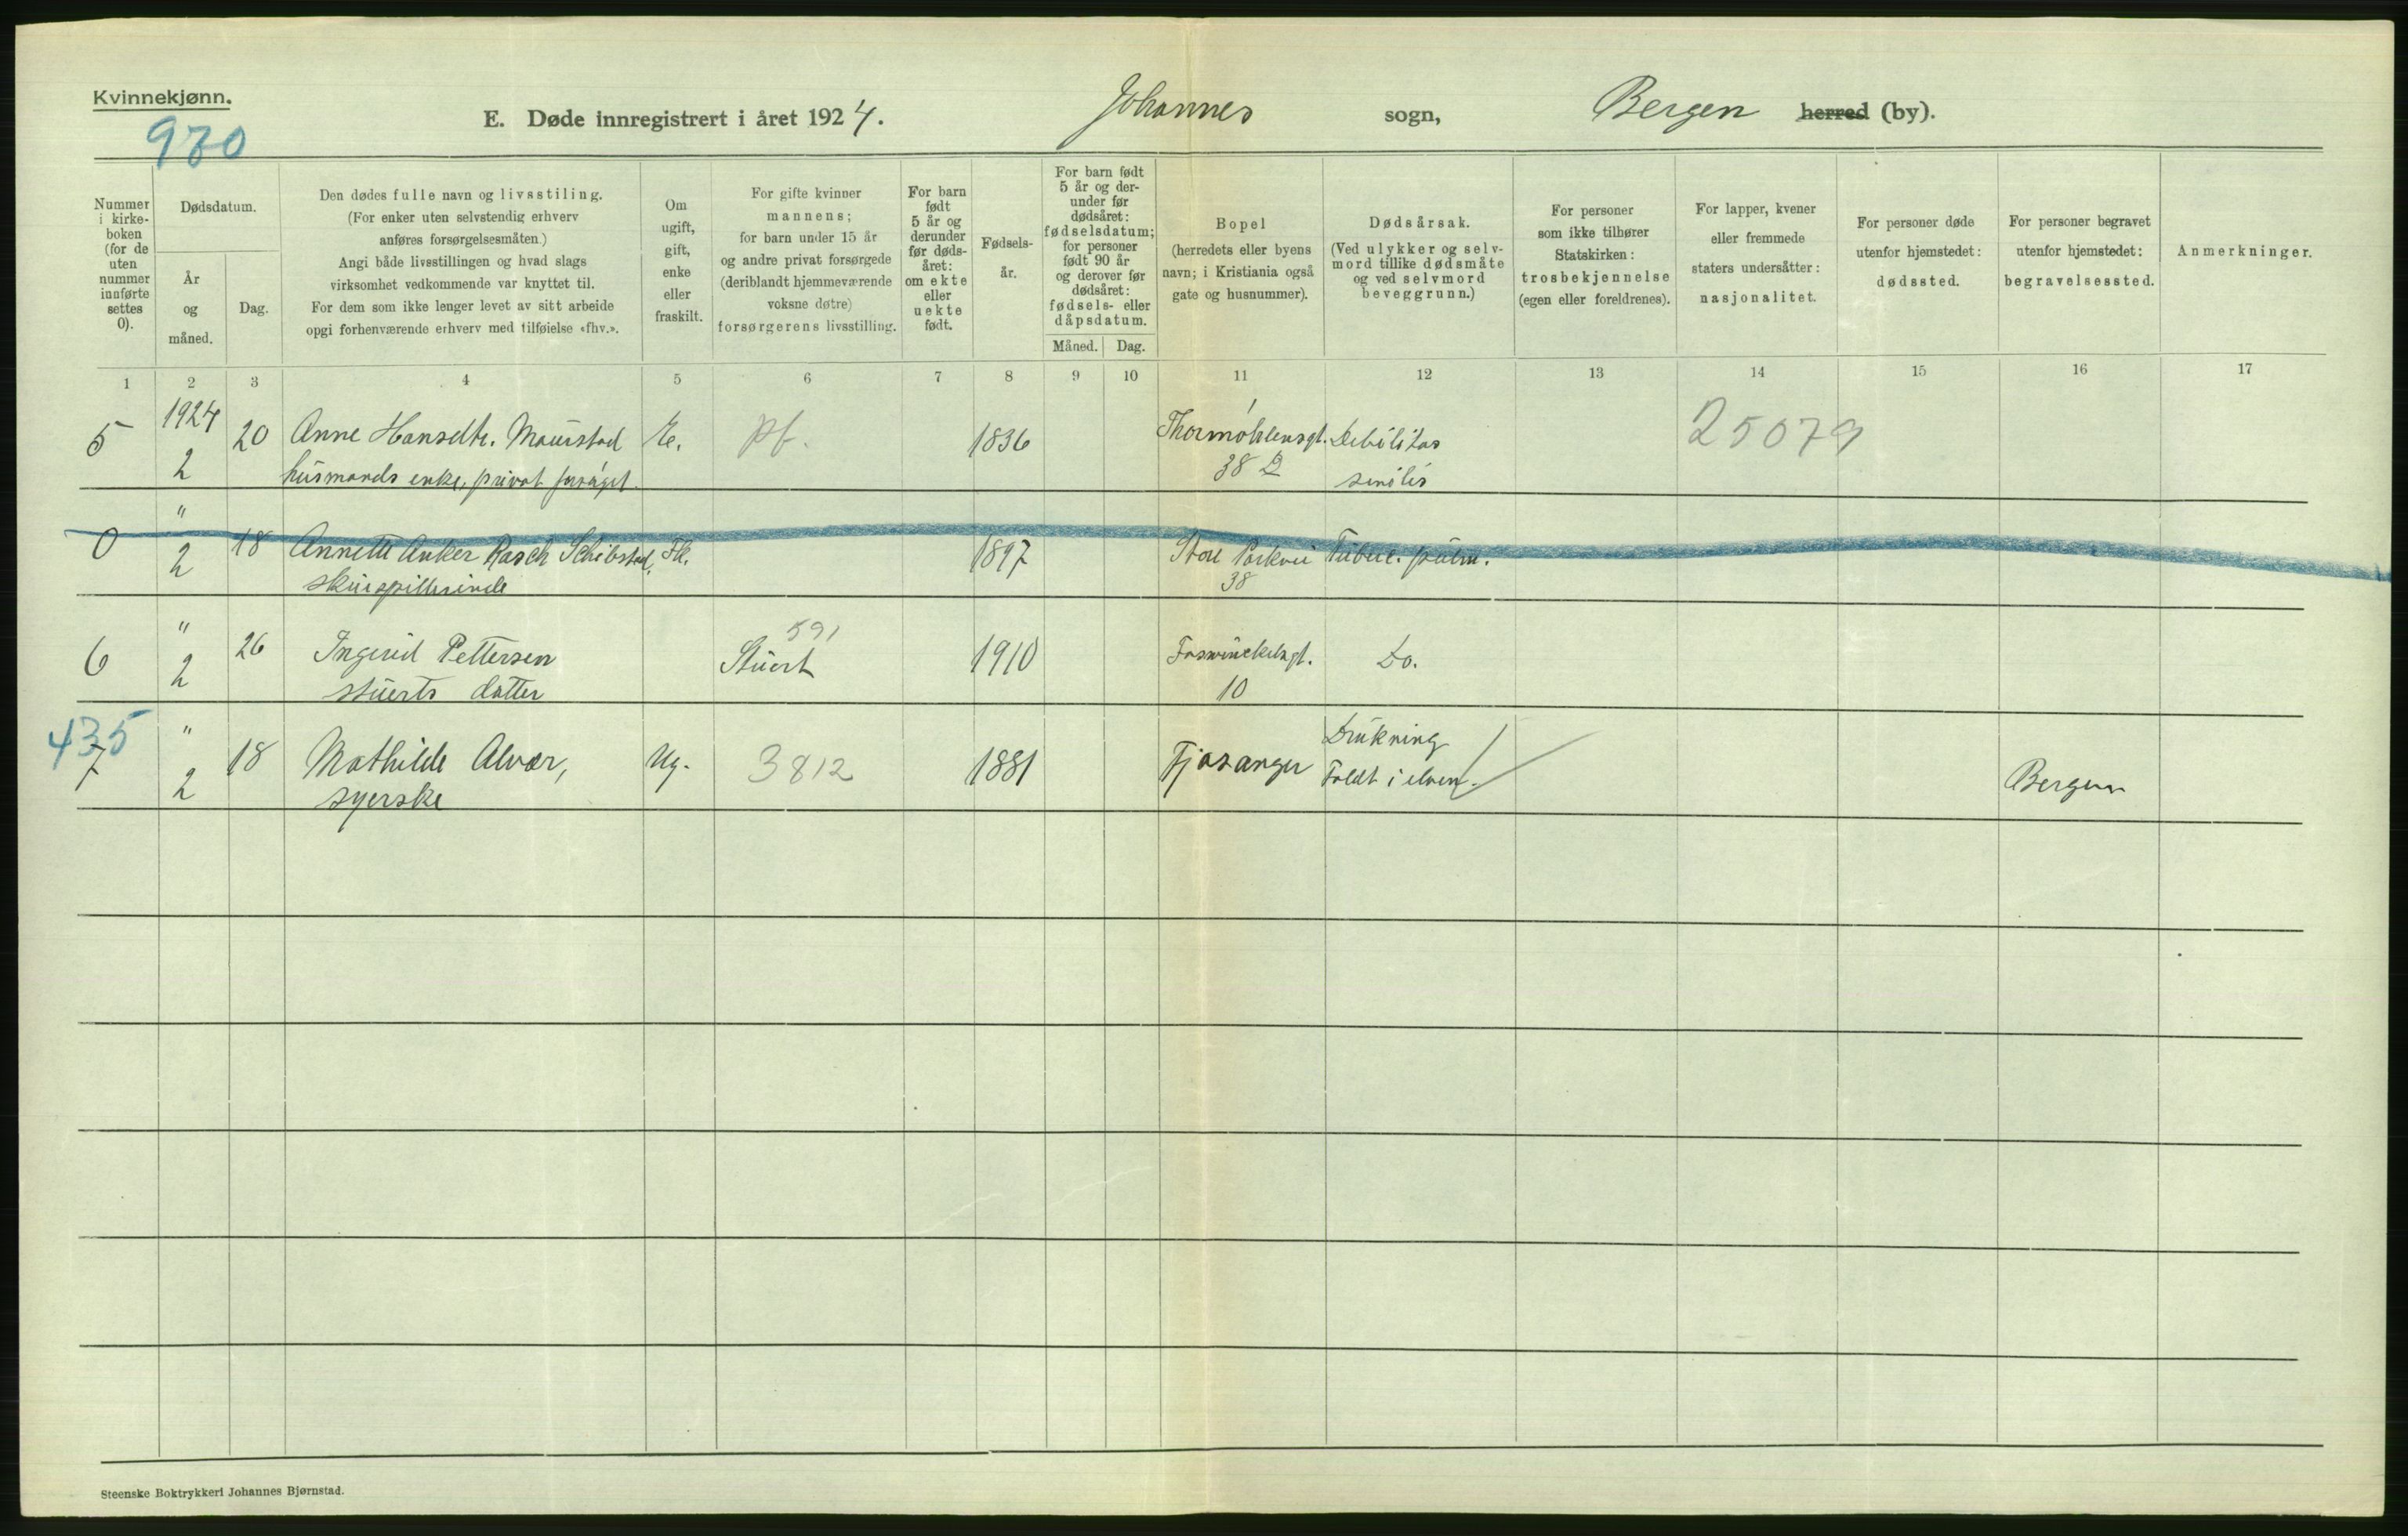 Kvinnekjønn.
E. Døde innregistrert i året 1924. Johannes sogn, Bergen herred (by).
980
Nummer
i kirke-
boken
(for de
uten
nummer
innførte
settes
0).
Dødsdatum.
År
og
måned.
Dag.
Den dødes fulle navn og livsstiling.
(For enker uten selvstendig erhverv
anføres forsørgelsesmåten.)
Angi både livsstillingen og hvad slags
virksomhet vedkommende var knyttet til.
For dem som ikke lenger levet av sitt arbeide
opgi forhenværende erhverv med tilføielse «fhv.».
Om
ugift,
gift,
enke
eller
fraskilt.
For gifte kvinner
mannens;
for barn under 15 år
og andre privat forsørgede
(deriblandt hjemmeværende
voksne døtre)
forsørgerens livsstilling.
For barn
født
5 år og
derunder
før døds-
året:
om ekte
eller
uekte
født.
Fødsels-
år.
For barn født
5 år og der-
under før
dødsåret:
fødselsdatum;
for personer
født 90 år
og derover før
dødsåret:
fødsels- eller
dåpsdatum.
Måned. Dag.
Bopel
(herredets eller byens
navn; i Kristiania også
gate og husnummer).
Dødsårsak.
(Ved ulykker og selv-
mord tillike dødsmåte
og ved selvmord
beveggrunn.)
For personer
som ikke tilhører
Statskirken:
trosbekjennelse
(egen eller foreldrenes).
For lapper, kvener
eller fremmede
staters undersåtter:
nasjonalitet.
For personer døde
utenfor hjemstedet:
dødssted.
For personer begravet
utenfor hjemstedet:
begravelsessted.
Anmerkninger.
1 2 3 4 5 6 7 8 9 10 11 12 13 14 15 16 17
5 1924 2 20 Anne Hansdtr. Maurstad E. pf. 1836 Thormøhlensgt. Debilitas 25079
husmands enke, privat forsørget. 38 D senilis
0 " 2 18 Annette Anker Rasch Schibsted, Fr. 1897 Store Parkvei Tuberc. pulm.
skuespillerinde 38
6 " 2 26 Ingerid Pettersen Stuert 591 1910 Foswinckelsgt. Do.
stuerts datter 10
435
7 " 2 18 Mathilde Alvær, Ug. 3812 1881 Fjøsanger Drukning Bergen
syerske Faldt i elven.
Steenske Boktrykkeri Johannes Bjørnstad.